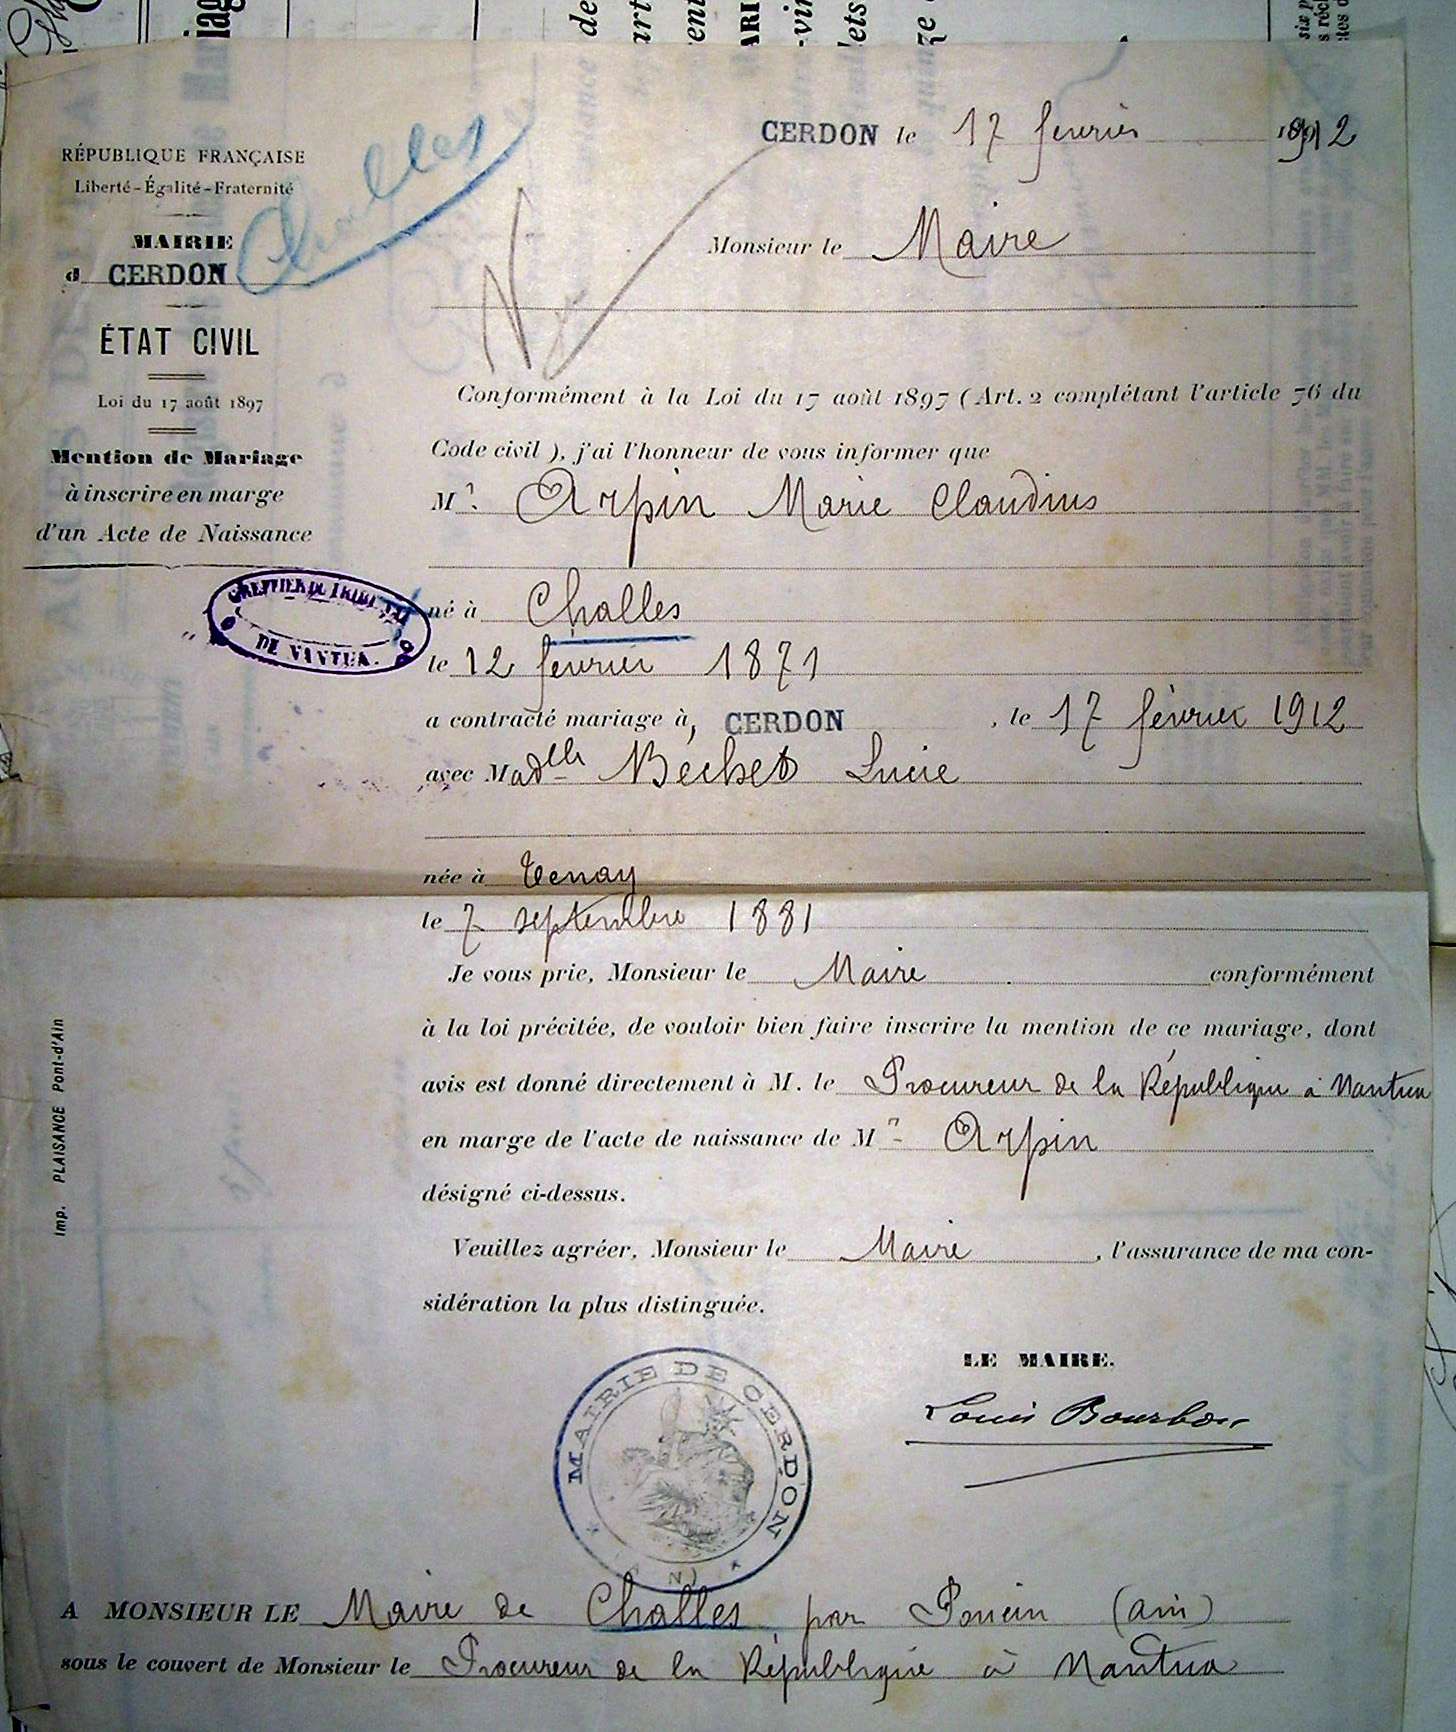 Challes
RÉPUBLIQUE FRANÇAISE
Liberté-Égalité-Fraternité
MAIRIE
d CERDON
ÉTAT CIVIL
Loi du 17 août 1897
Mention de Mariage
à inscrire en marge
d'un Acte de Naissance
GREFFIER DU TRIBUNAL
DE NANTUA.
CERDON le 17 février 1912
Monsieur le Maire
Conformément à la Loi du 17 août 1897 (Art. 2 complétant l'article 76 du
Code civil), j'ai l'honneur de vous informer que
Mr. Arpin Marie Claudius
né à Challes
le 12 février 1871
a contracté mariage à, CERDON, le 17 février 1912
avec Madelle Béchet Lucie
née à Tenay
le 7 septembre 1881
Je vous prie, Monsieur le Maire conformément
à la loi précitée, de vouloir bien faire inscrire la mention de ce mariage, dont
avis est donné directement à M. le Procureur de la République à Nantua
en marge de l'acte de naissance de Mr Arpin
désigné ci-dessus.
Veuillez agréer, Monsieur le Maire, l'assurance de ma con-
sidération la plus distinguée.
LE MAIRE.
Louis Bourbon
MAIRIE DE CERDON
A MONSIEUR LE Maire de Challes par Poncin (ain)
sous le couvert de Monsieur le Procureur de la République à Nantua
Imp. PLAISANCE Pont-d'Ain